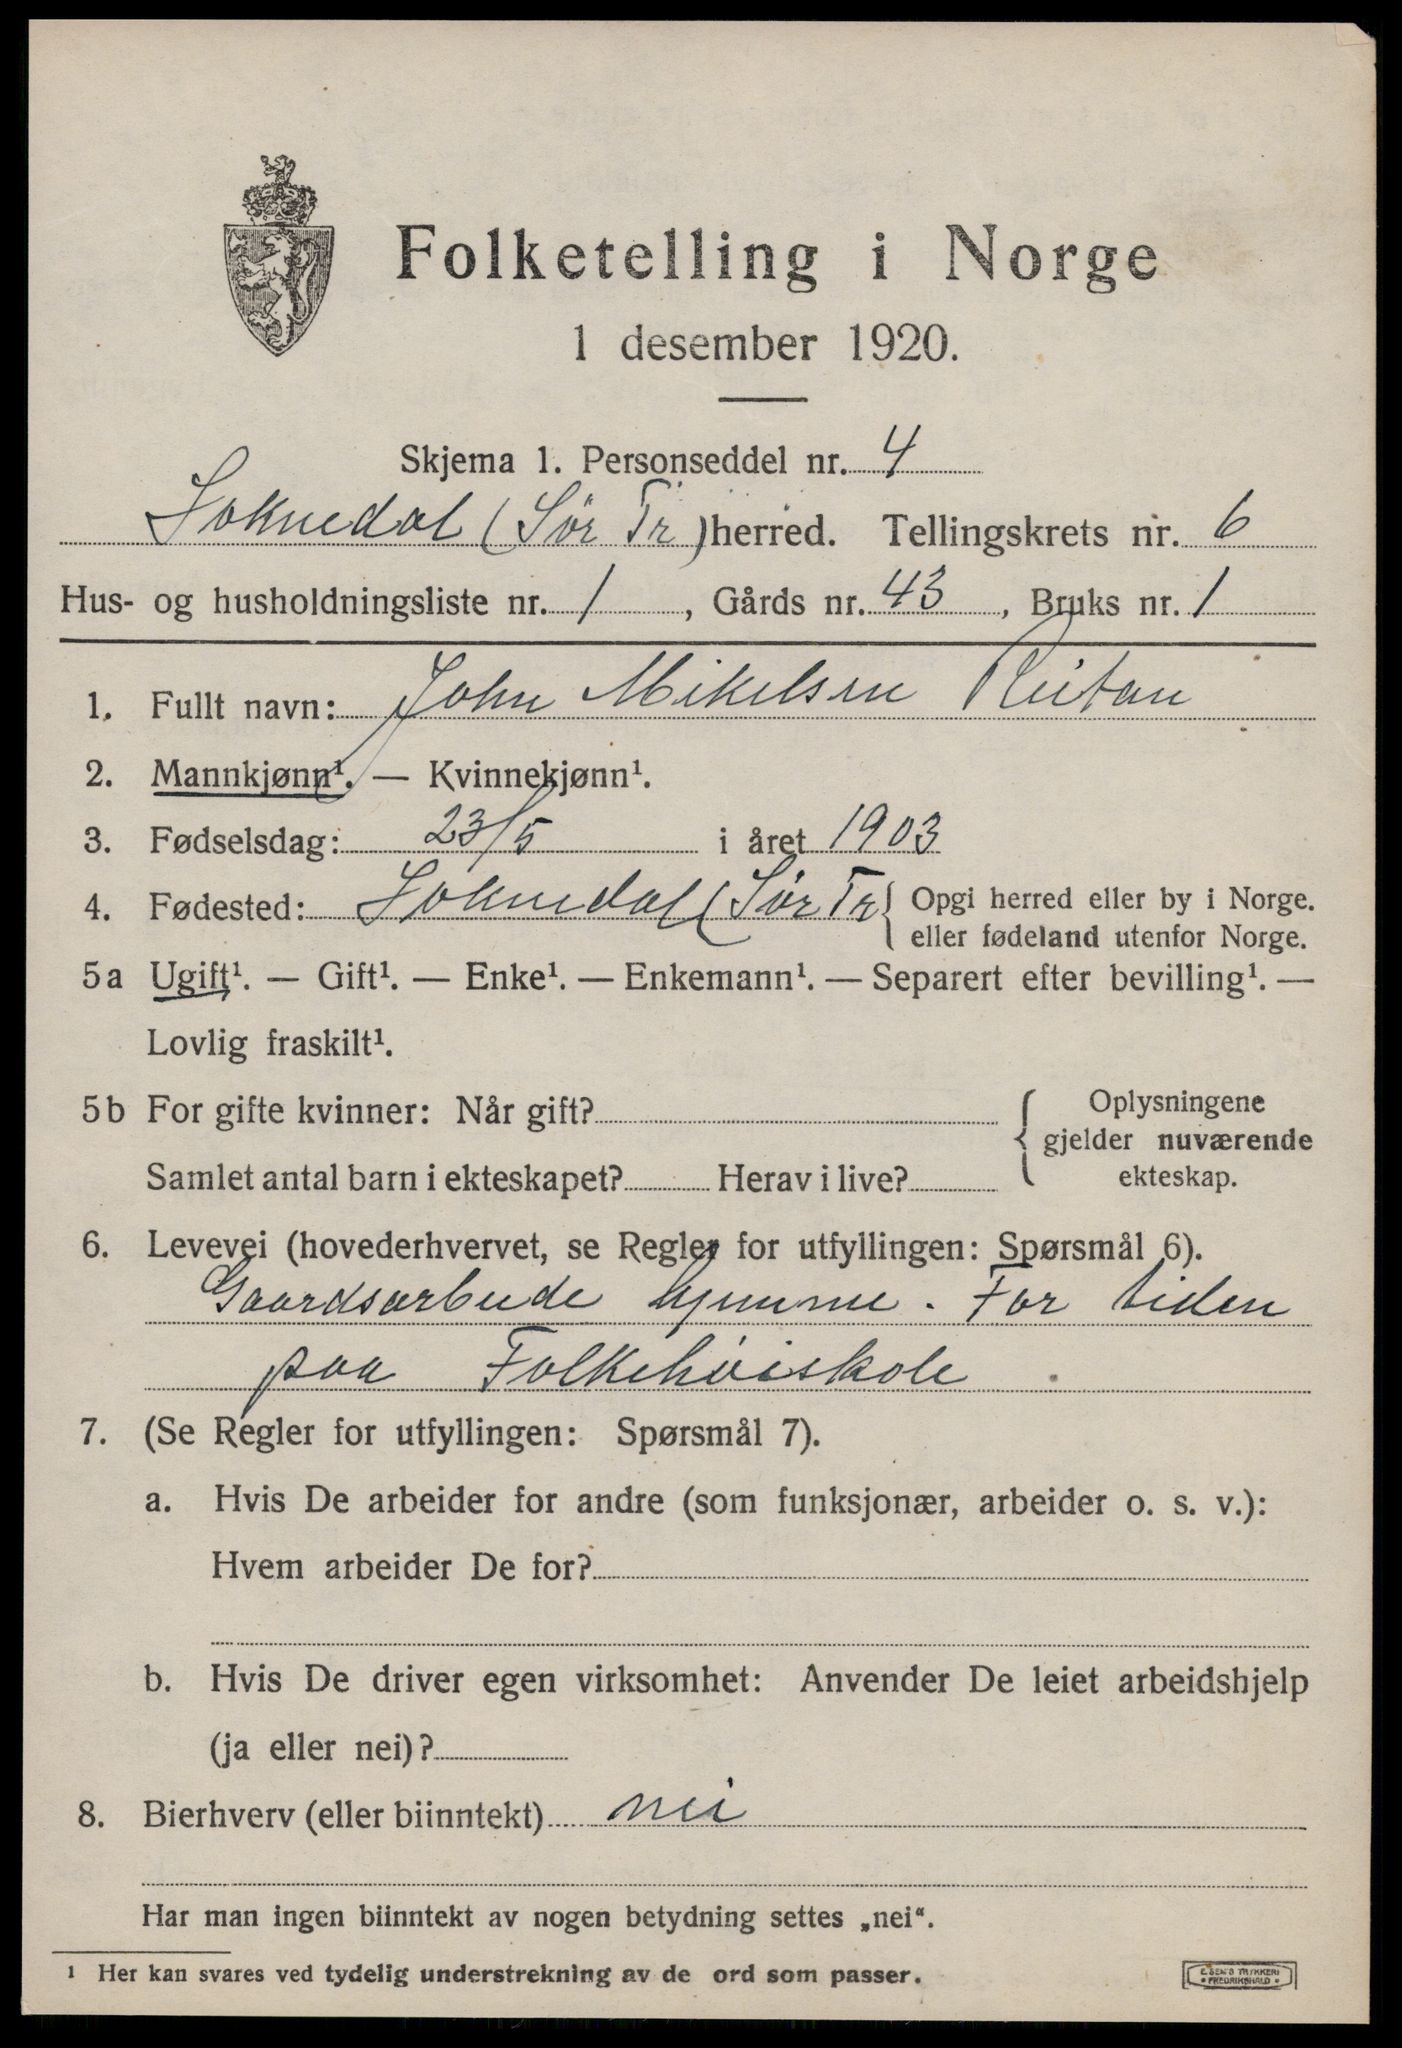 Folketelling i Norge
1 desember 1920.
Skjema 1. Personseddel nr. 4
Soknedal (Sør Tr) herred. Tellingskrets nr. 6
Hus- og husholdningsliste nr. 1, Gårds nr. 43, Bruks nr. 1
1. Fullt navn: John Mikelsen Reitan
2. Mannkjønn¹. — Kvinnekjønn¹.
3. Fødselsdag: 23/5 i året 1903
4. Fødested: Soknedal (Sør Tr { Opgi herred eller by i Norge.
eller fødeland utenfor Norge.
5a Ugift¹. — Gift¹. — Enke¹. — Enkemann¹. — Separert efter bevilling¹. —
Lovlig fraskilt¹.
5b For gifte kvinner: Når gift?
Samlet antal barn i ekteskapet? Herav i live?
{ Oplysningene
gjelder nuværende
ekteskap.
6. Levevei (hovederhvervet, se Regler for utfyllingen: Spørsmål 6).
Gaardsarbeide hjemme. For tiden
paa Folkehøiskole
7. (Se Regler for utfyllingen: Spørsmål 7).
a. Hvis De arbeider for andre (som funksjonær, arbeider o. s. v.):
Hvem arbeider De for?
b. Hvis De driver egen virksomhet: Anvender De leiet arbeidshjelp
(ja eller nei)?
8. Bierhverv (eller biinntekt) nei
Har man ingen biinntekt av nogen betydning settes „nei“.
¹ Her kan svares ved tydelig understrekning av de ord som passer.
E. SEM'S TRYKKERI
• FREDRIKSHALD •